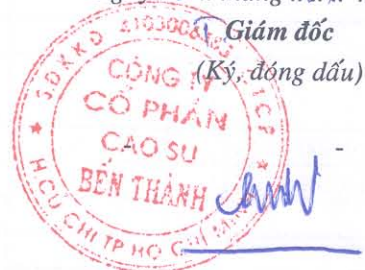 Giám đốc
(Ký, đóng dấu)
CÔNG TY
CỔ PHẦN
CAO SU
BẾN THÀNH
H.CỦ CHI TP HỒ CHÍ MINH